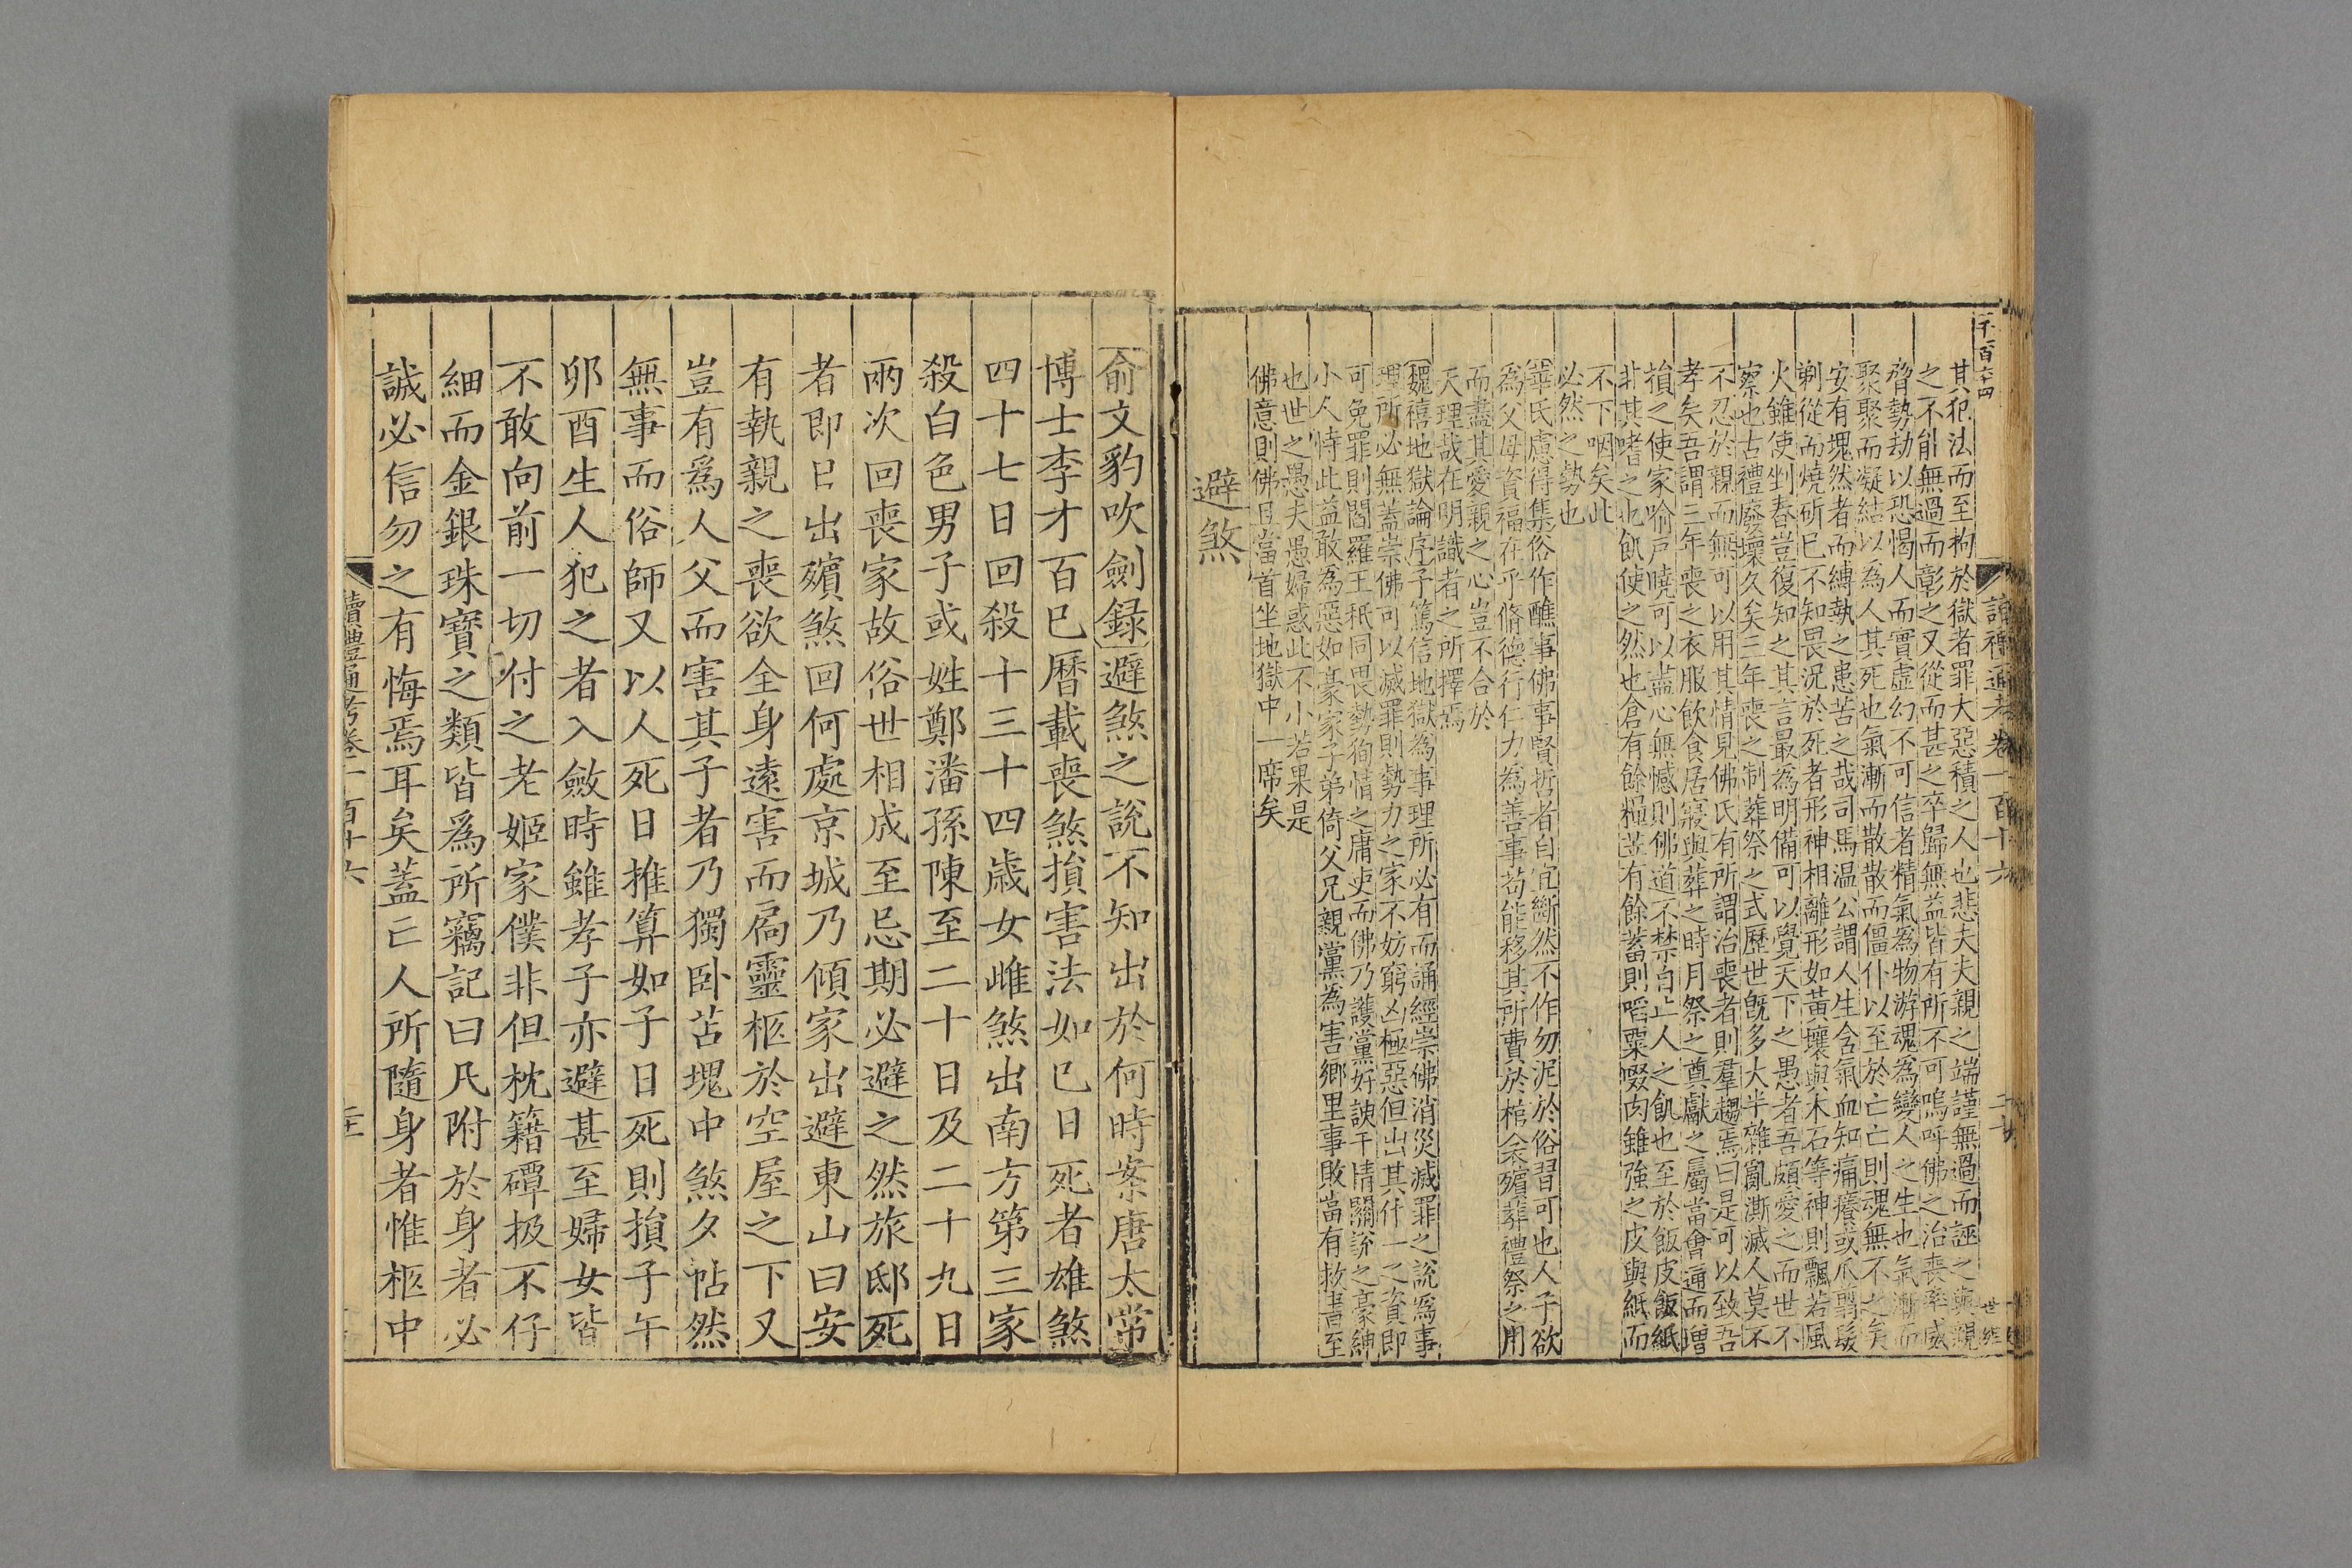 千二百六十四
讀禮通考卷一百十六
二十
其犯法而至拘於獄者罪大惡積之人也悲夫夫親之端謹無過而誣之與親
之不能無過而彰之又從而甚之卒歸無益皆有所不可嗚呼佛之治喪率威
脅勢劫以恐愒人而實虛幻不可信者精氣為物游魂為變人之生也氣漸而
聚聚而凝結以為人其死也氣漸而散散而僵仆以至於亡亡則魂無不之矣
安有塊然者而縛執之患苦之哉司馬溫公謂人生含氣血知痛癢或爪翦髮
剃從而燒斫已不知畏況於死者形神相離形如黃壤與木石等神則飄若風
火雖使剉舂豈復知之其言最為明備可以覺天下之愚者吾頗愛之而世不
察也古禮廢壞久矣三年喪之制葬祭之式歷世既多大半雜亂澌滅人莫不
不忍於親而無可以用其情見佛氏有所謂治喪者則羣趨焉曰是可以致吾
孝矣吾謂三年喪之衣服飲食居寢與葬之時月祭之奠獻之屬當會通而增
損之使家喻戶曉可以盡心無憾則佛道不禁自止人之飢也至於飯皮飯紙
非其嗜之也飢使之然也倉有餘糧盖有餘蓄則啗粟啜肉雖強之皮與紙而
不下咽矣此
必然之勢也
華氏慮得集俗作醮事佛事賢哲者自宜斷然不作勿泥於俗習可也人子欲
為父母資福在乎脩德行仁力為善事苟能移其所費於棺衾殯葬禮祭之用
而盡其愛親之心豈不合於
天理哉在明識者之所擇焉
魏禧地獄論序予篤信地獄為事理所必有而誦經崇佛消災滅罪之說為事
理所必無蓋崇佛可以滅罪則勢力之家不妨窮凶極惡但出其什一之資即
可免罪則閻羅王秪同畏勢徇情之庸吏而佛乃護黨好諛干情關說之豪紳
小人恃此益敢為惡如豪家子弟倚父兄親黨為害鄉里事敗當有救書至
也世之愚夫愚婦惑此不小若果是
佛意則佛目當首坐地獄中一席矣
避煞
俞文豹吹劍録避煞之說不知出於何時案唐太常
博士李才百巳曆載喪煞損害法如巳日死者雄煞
四十七日回殺十三十四歲女雌煞出南方第三家
殺白色男子或姓鄭潘孫陳至二十日及二十九日
兩次回喪家故俗世相成至忌期必避之然旅邸死
者即日出殯煞回何處京城乃傾家出避東山曰安
有執親之喪欲全身遠害而扃靈柩於空屋之下又
豈有爲人父而害其子者乃獨卧苫塊中煞夕帖然
無事而俗師又以人死日推算如子日死則損子午
卯酉生人犯之者入斂時雖孝子亦避甚至婦女皆
不敢向前一切付之老姬家僕非但枕籍磹扱不仔
細而金銀珠寶之類皆爲所竊記曰凡附於身者必
誠必信勿之有悔焉耳矣蓋亡人所隨身者惟柩中
讀禮通考卷一百十六